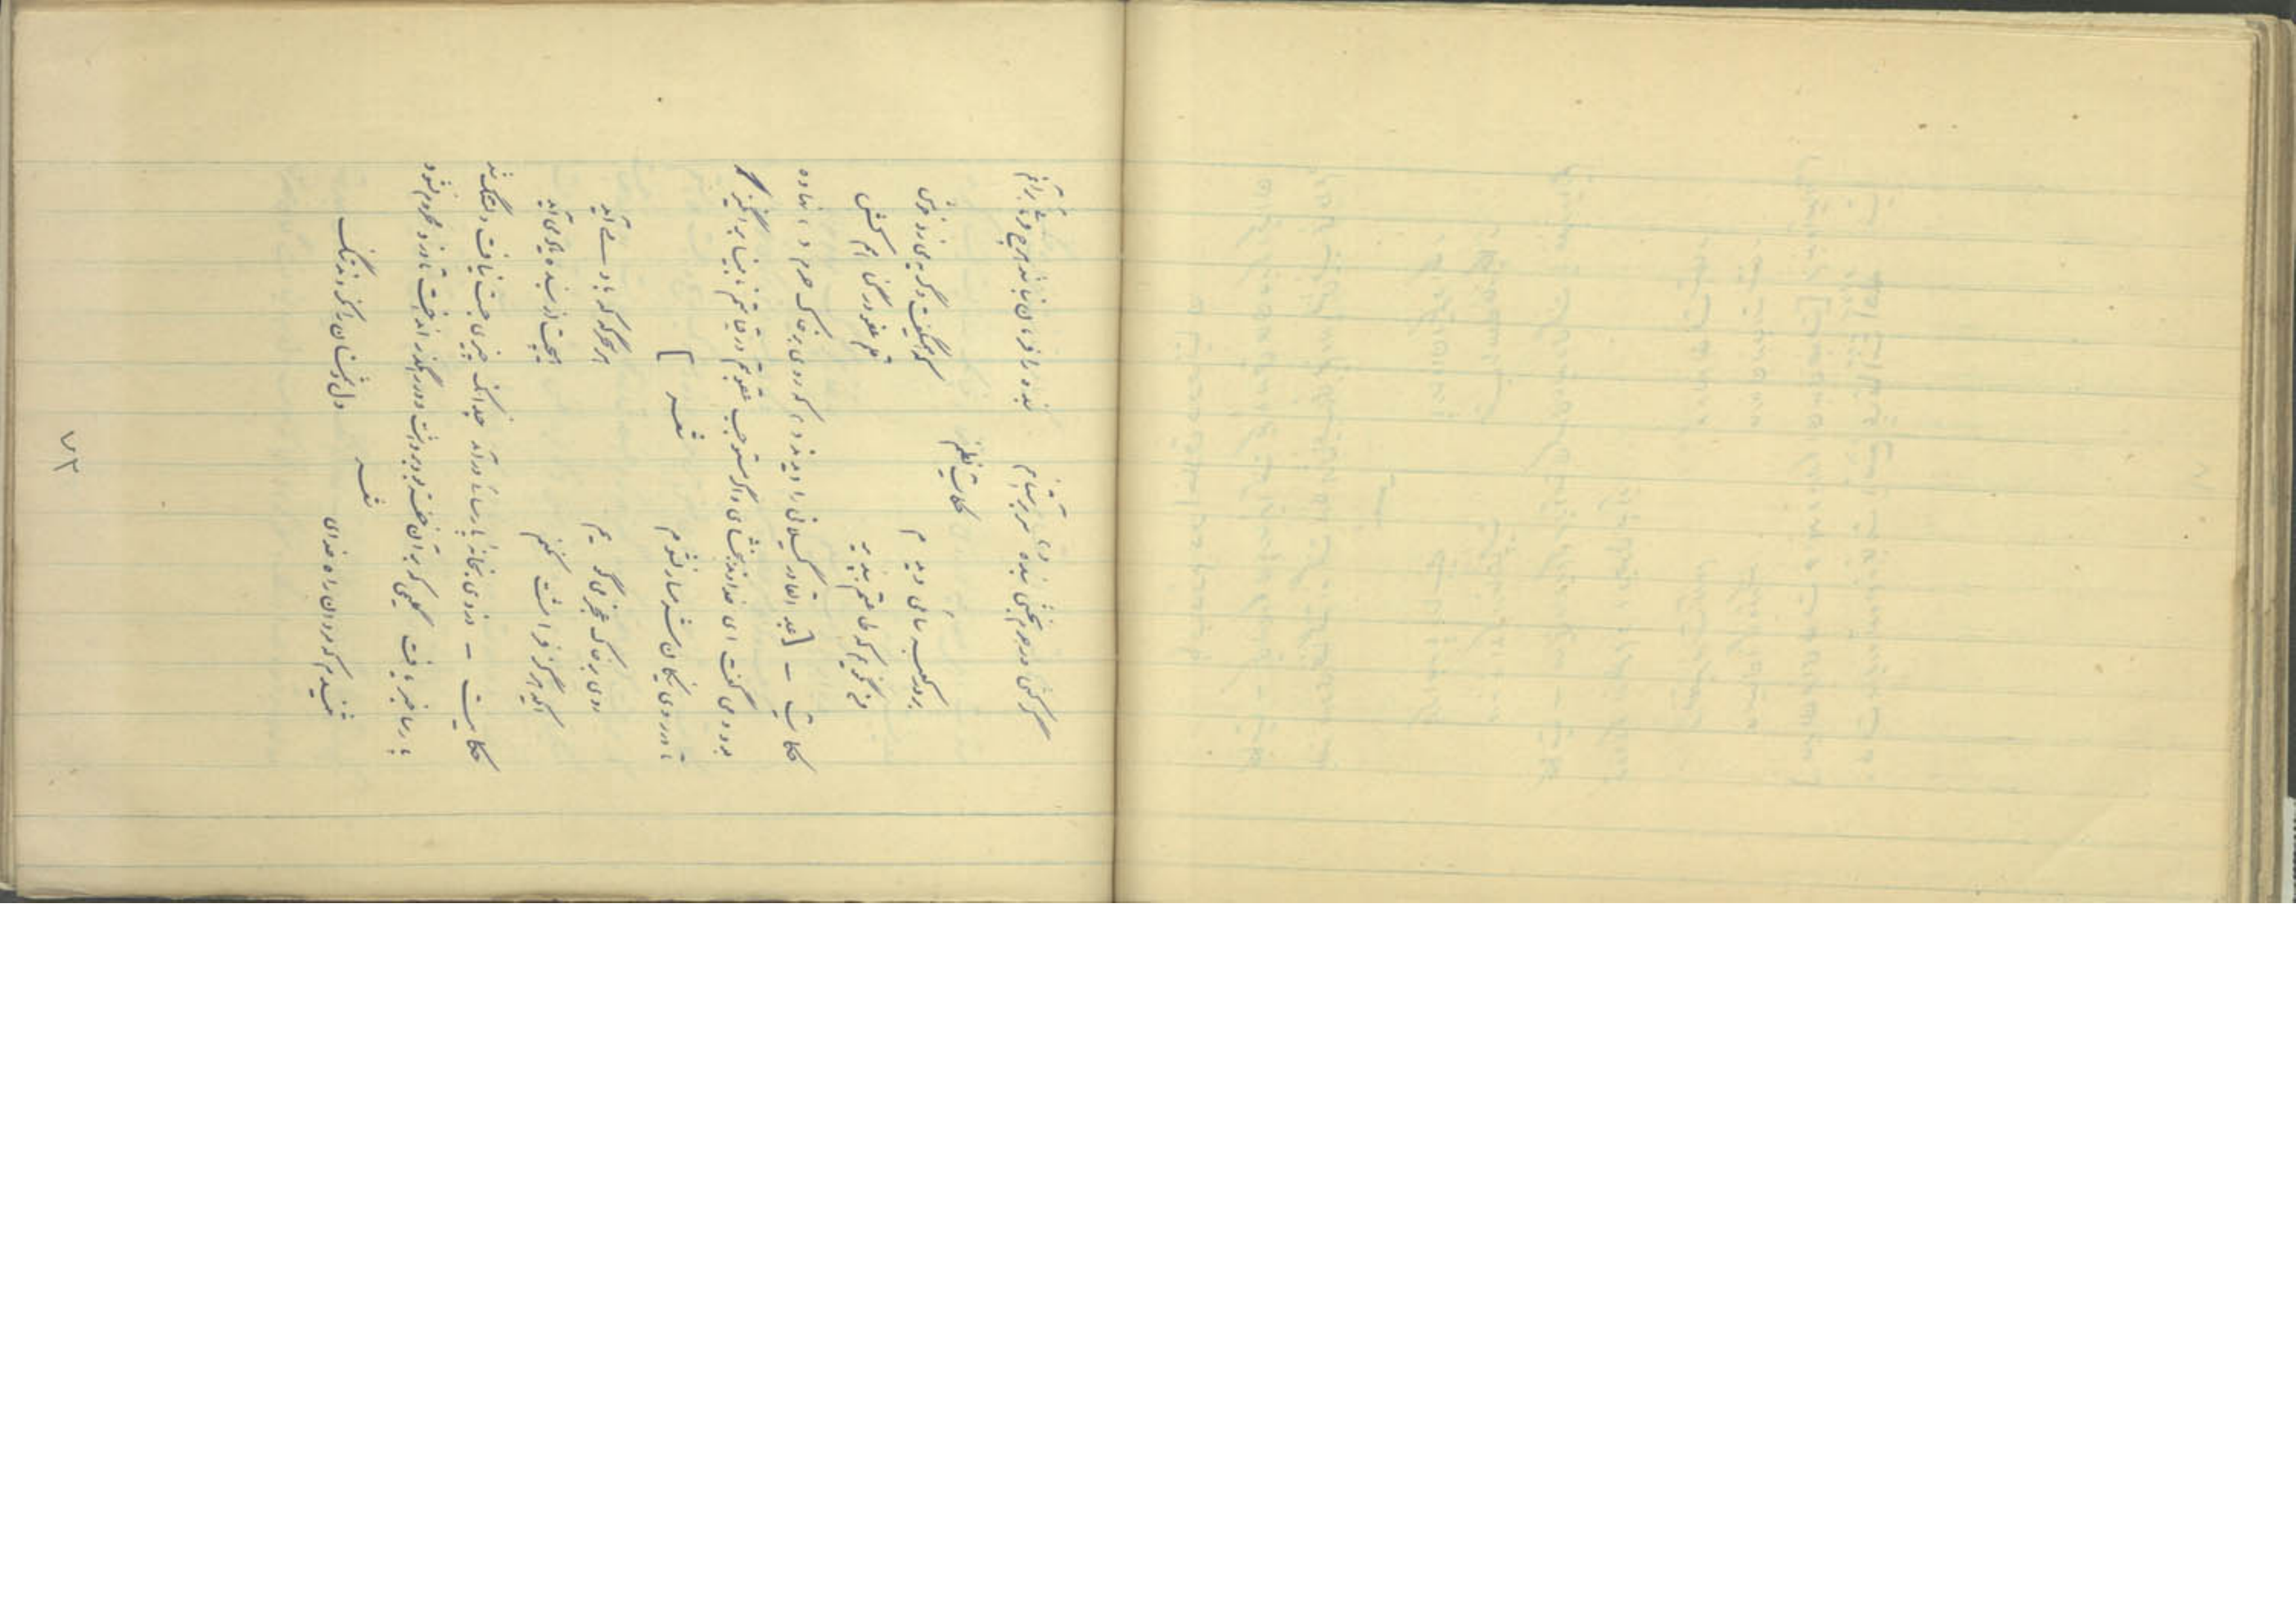 گر کشی ور جرم بخشی بنده سر بر آستانم بنده را فرمان نباشد هرچه فرمائی بر آنم
حکایت نظم
بر در کعبه سائلی دیدم که همیگفت و خوش
من نگویم که طاعتم بپذیر قلم عفو در گناهم کش
حکایت – [عبد القادر گیلانی را دیدند که روی بر خاک حرم نهاده
بود می گفت ای خداوند ببخشای و اگر مستوجب عقوبتم در قیامتم نابینا برانگیز
تا در روی نیکان شرمسار نشوم شعر ]
روی بر خاک عجز می گویم هر سحرگه که باد می آید
ایکه هرگز فرامشت نکنم هیچت از بنده یاد می آید
حکایت – دزدی بخانه پارسائی درآمد چندانکه چیزی جست نیافت دلتنگ شد
پارسا خبر یافت گلیمی که بر آن خفته بود برداشت و در رهگذر انداخت تا دزد محروم نشود
شعر
شنیدم که مردان راه خدای دل دشمنان را نکردند تنگ
۷۳